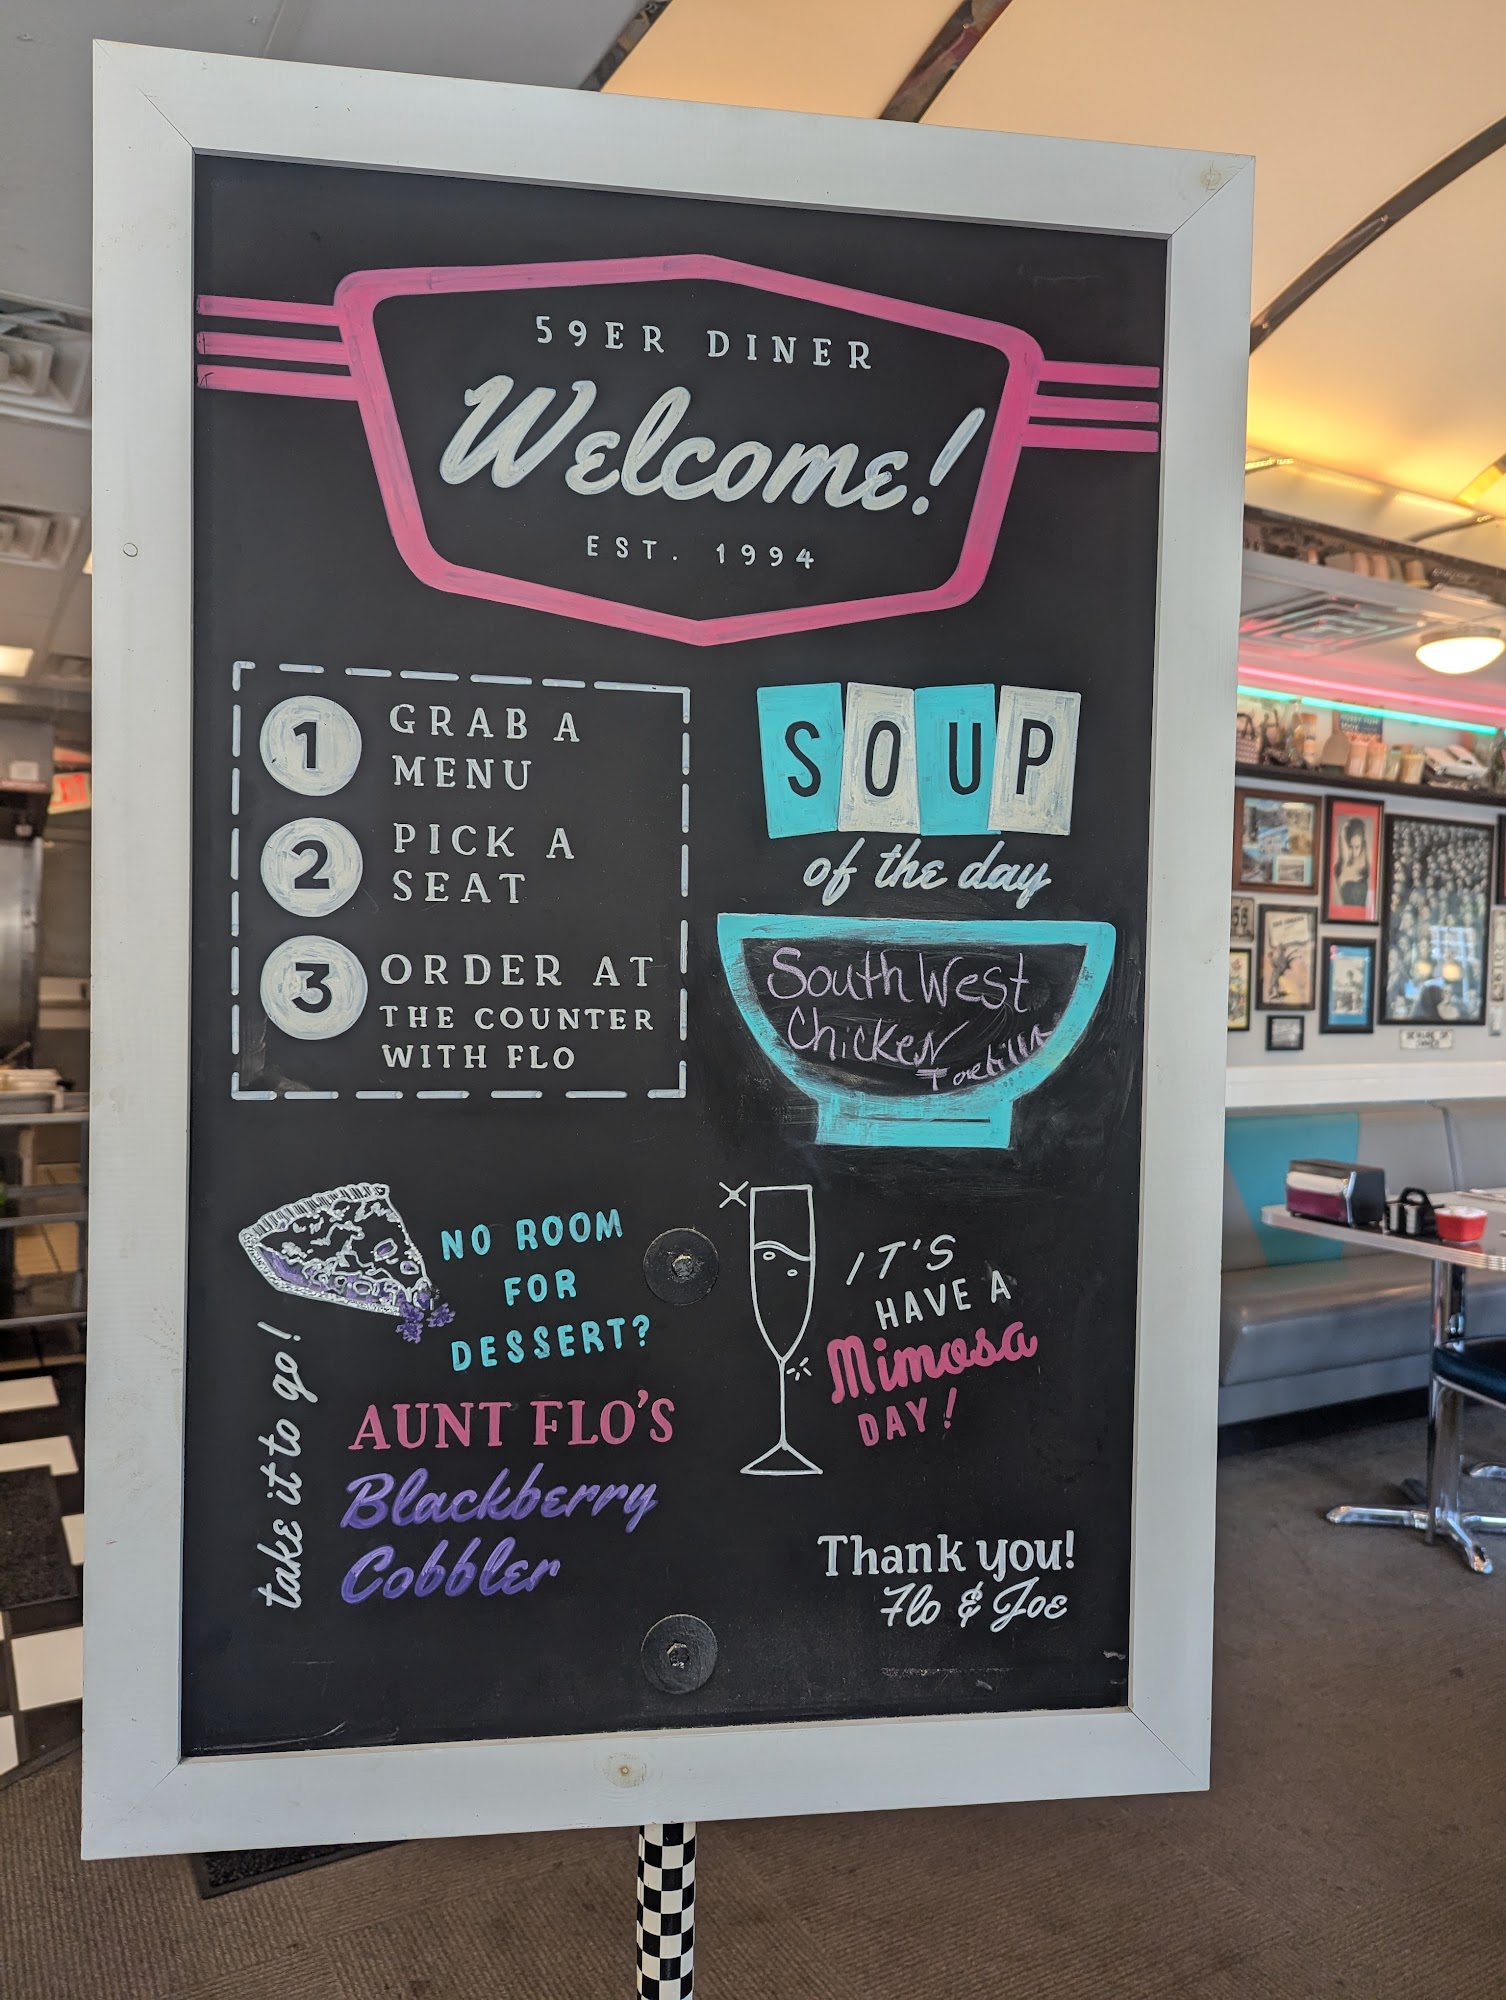 59ER DINER
Welcome!
EST. 1994
1 GRAB A
MENU
2 PICK A
SEAT
3 ORDER AT
THE COUNTER
WITH FLO
SOUP
of the day
SouthWest
Chicken
Tortilla
take it to go!
NO ROOM
FOR
DESSERT?
AUNT FLO'S
Blackberry
Cobbler
IT'S
HAVE A
Mimosa
DAY!
Thank you!
Flo & Joe